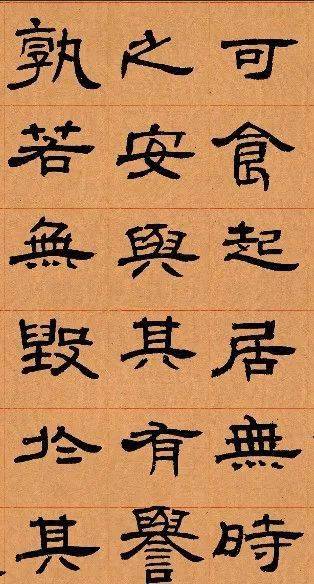 可食起居無時
之安與其有譽
孰若無毀於其